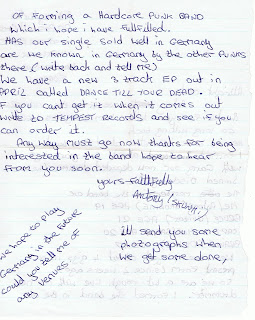 OF Forming a Hardcore PUNK BAND
which i hope i have fullfilled.
HAS our single sold well in Germany
are we known in Germany by the other Punks
there (write back and tell me)
We have a new 3 track EP out in
APRIL called DANCE TILL YOUR DEAD.
if you cant get it when it comes out
write to TEMPEST RECORDS and see if you
can order it.
Any way must go now thanks for being
interested in the band hope to hear
FROM you soon.
yours Faithfully
i'll send you some
photographs when
we get some done,
we hope to play
Germany in the future
could you tell me of
any venues